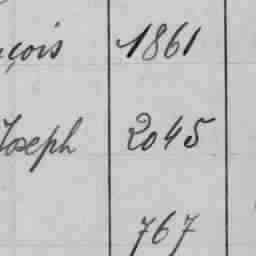 nçois 1861
Joseph 2045
767